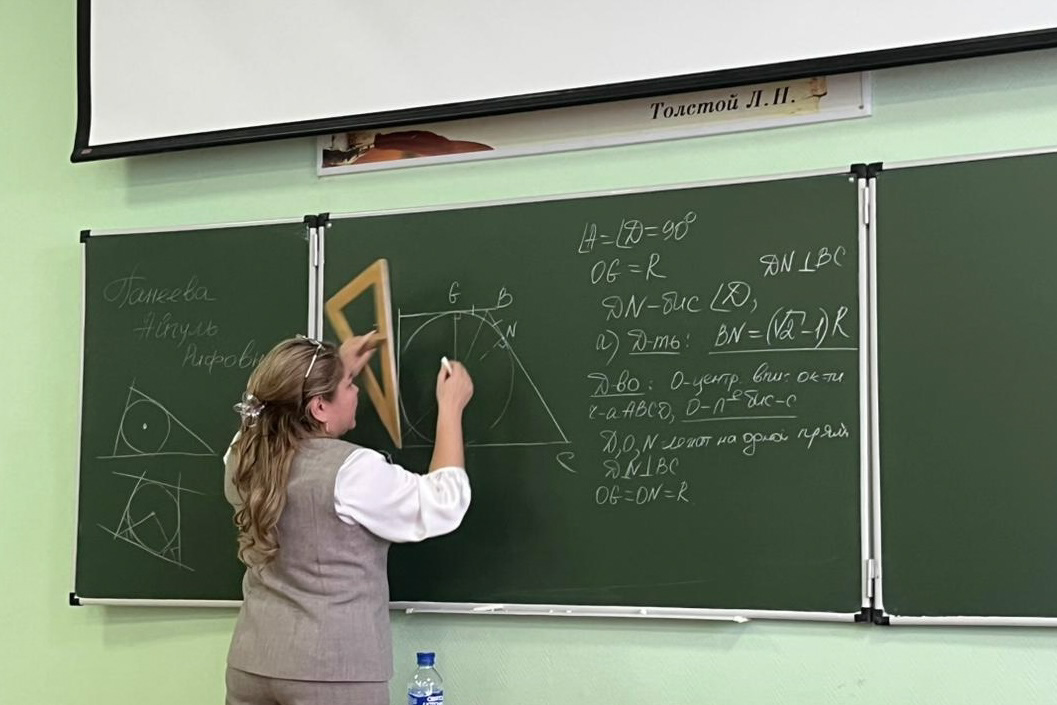 Толстой Л.Н.
Ганеева
Айгуль
Рифовн
∠A=∠D=90°
OG=R
DN⊥BC
DN-бис ∠D,
а) Д-ть: BN=(√2-1)R
Д-во: O-центр впис ок-ти
ч-а ABCD, O-П е бис-с
D,O,N лежат на одной прям
DN⊥BC
OG=ON=R
G B
N
C